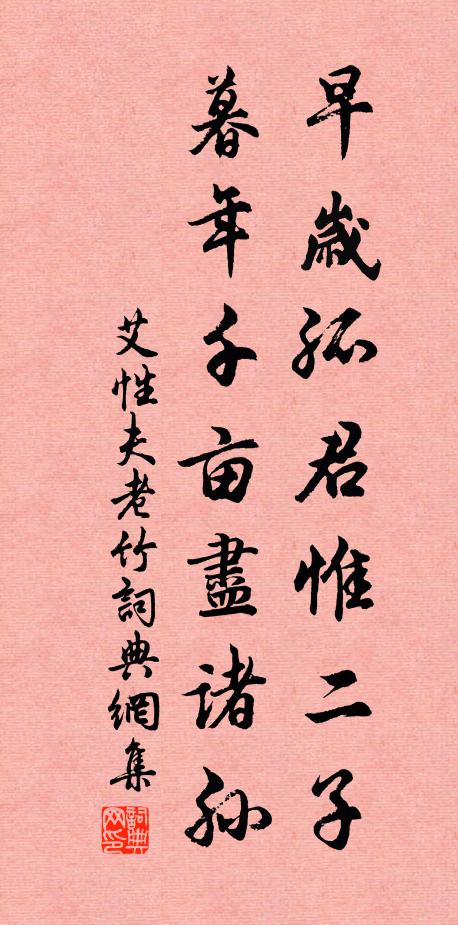 早歲孤君惟二子
暮年千亩盡诸孙
艾性夫老竹詞典網集
詞典网印